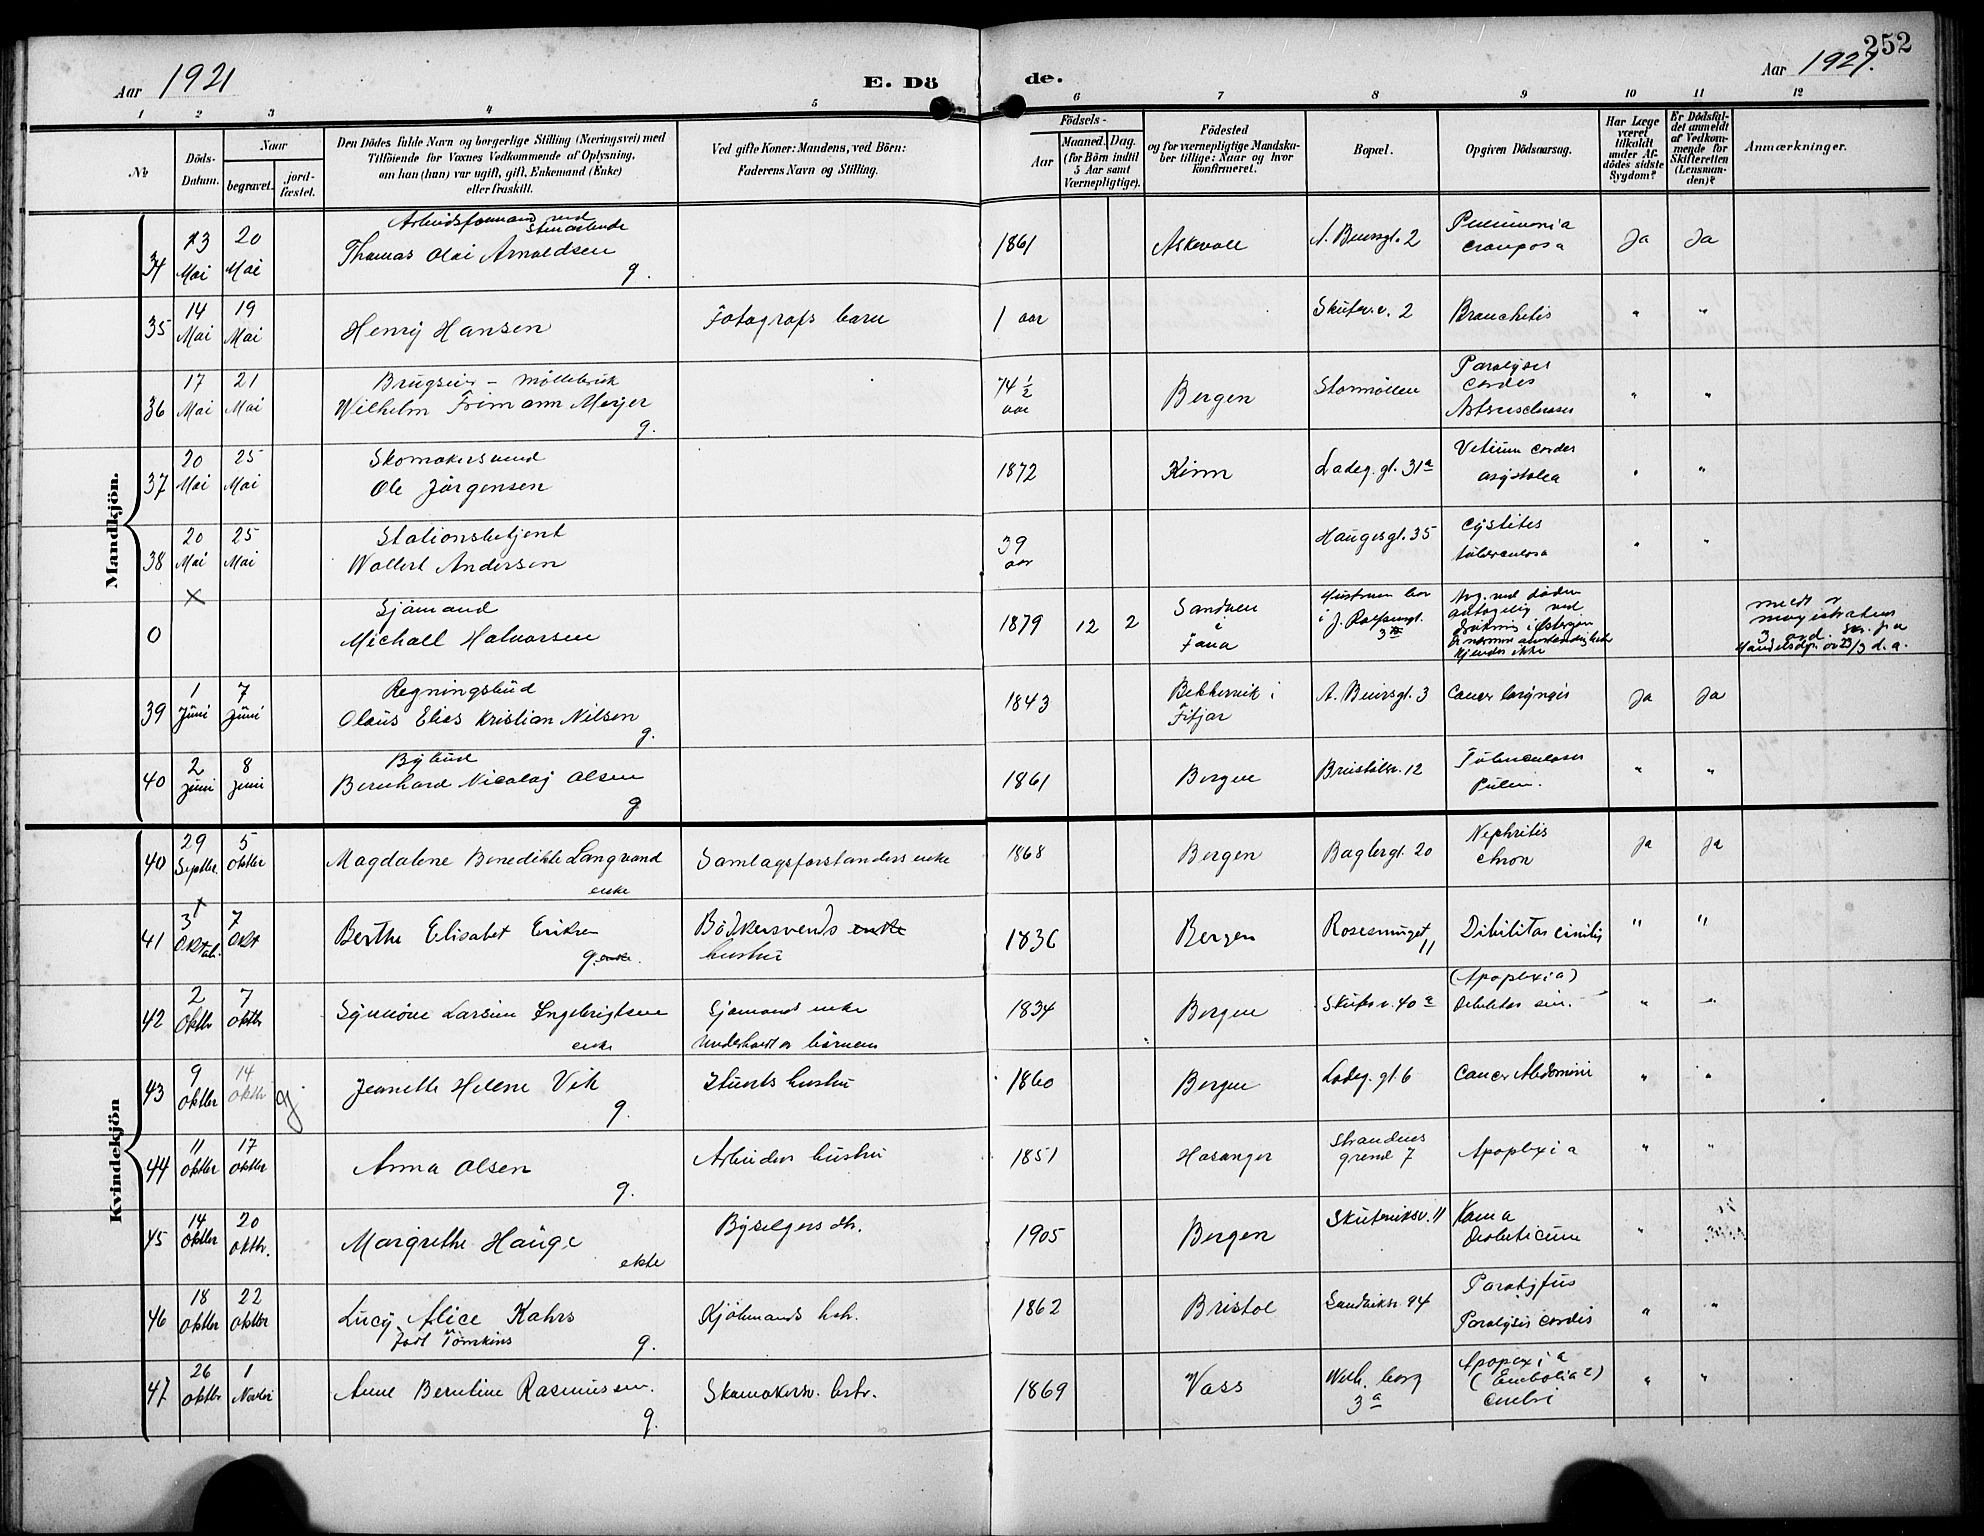 252
Aar 1921
E. Dö
de.
Aar 1921.
1 2 3 4 5 6 7 8 9 10 11 12
No
Döds-Datum.
Naar
begravet.
jord-fæstet.
Den Dödes fulde Navn og borgerlige Stilling (Næringsvei) med
Tilföiende for Voxnes Vedkommende af Oplysning,
om han (hun) var ugift, gift, Enkemand (Enke)
eller fraskilt.
Ved gifte Koner: Mandens, ved Börn:
Faderens Navn og Stilling.
Födsels-
Aar
Maaned. Dag.
(for Börn indtil
5 Aar samt
Værnepligtige).
Födested
og for værnepligtige Mandska-
ber tillige: Naar og hvor
konfirmeret.
Bopæl.
Opgiven Dödsaarsag.
Har Læge
været
tilkaldt
under Af-
dödes sidste
Sygdom?
Er Dödsfal-
det anmeldt
af Vedkom-
mende for
Skifteretten
(Lensman-
den)?
Anmærkninger.
Mandkjön.
34 13 Mai 20 Mai
Arbeidsformand ved
Stenarbeide
Thomas Olai Arnoldsen
g.
1861 Askevoll 2 Pneumonia
crouposa Ja Ja
35 14 Mai 19 Mai Henry Hansen Fotografs barn 1 aar Skutev. v. 2 Bronchitis " "
36 17 Mai 21 Mai
Brugseier - Möllebruk
Wilhelm Frimann Meyer
g.
74 1/2 aar Bergen Stormöllen
Paralysis
cordis
" "
37 20 Mai 25 Mai
Skomakersvend
Ole Jörgensen
1872 Kinn Ladeg. gt. 31a cordis
asystolia " "
38 20 Mai 25 Mai
Stationsbetjent
Wollert Andersen
39 aar Haugesgt. 35 Cystitis
tuberculosa " "
0 x
Sjömand
Michall Halvorsen
1879 12 2 Sandven
i
Fana
Hustruen bor
i J.
Avg. ved döden
antagelig ved
kjendes ikke
magistraten
39 1 Juni 7 Juni
Regningsbud
Olaus Elias Kristian Nilsen
g.
1843 Bekkervik i
Fitjar
3 Cancer laryngis Ja Ja
40 2 Juni 8 Juni
Bybud
Bernhard Nicolaj Olsen
g
1861 Bergen 12 Tuberculosis
Pulm. " "
Kvindekjön
40 29 Septbr. 5 Oktbr Magdalene Benedikte Langvand
enke
Samlagsforstanders enke 1868 Bergen Baglergt. 20 Nephritis
chron Ja Ja
41 3 Oktbr. 7 Okt Berthe Elisabet Eriksen
g. enke.
Bödkersvends enke
hustru
1836 Bergen Rosesmuget
11 " "
42 2 Oktbr 7 Oktbr Synnöve Larsine Ingebrigtsen
enke
Sjömands enke
Underholdt av börnene
1834 Bergen Skutev. v. 40 a
(Apoplexia)
Debilitas sen. " "
43 9 Oktbr 14 Oktbr Jeanette Helene Vik
g.
hustru 1860 Bergen Ladeg. gt 6 Cancer Abdomini " "
44 11 Oktbr 17 Oktbr Anna Olsen
g.
Arbeiders hustru 1851 Hosanger Strandens
grend 7 Apoplexia " "
45 14 Oktbr 20 Oktbr. Margrethe Hauge
ekte
Byselgers dtr. 1905 Bergen Skuteviksv. 11 Koma
Diabeticum "
46 18 Oktbr 22 Oktbr Lucy Alice Kahrs
född Tomkins g.
Kjöbmands hstr. 1862 Bristol Sandviksv. 94 Paratyfus
Paralysis cordis " "
47 26 Oktbr 1 Novbr Anne Berntine Rasmussen.
g.
Skomakersv. hstr. 1869 Voss Welh. borg
3 a
Apoplexia
(Embolia?)
cerebri " "